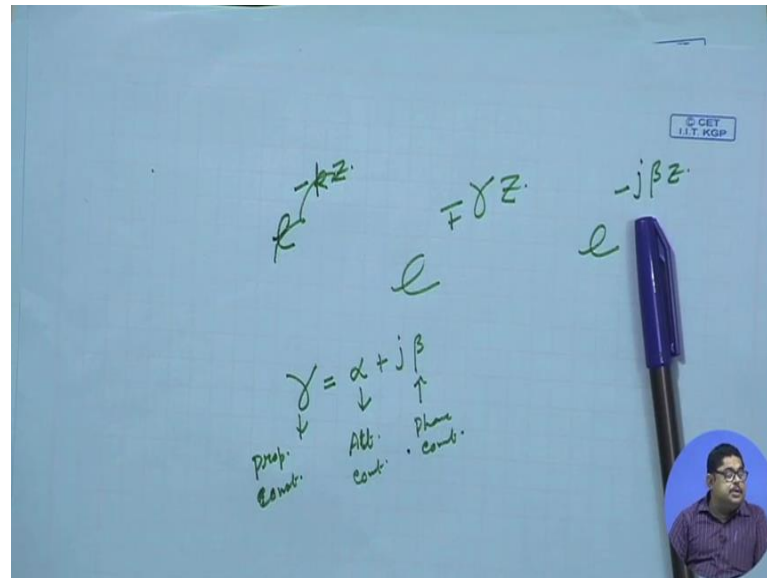 © CET
I.I.T. KGP
e^{-kz.}
e^{∓γz.}
e^{-jβz.}
γ = α + jβ
↓ ↓ ↑
Prop. Const.
Att. Const.
Phase Const.